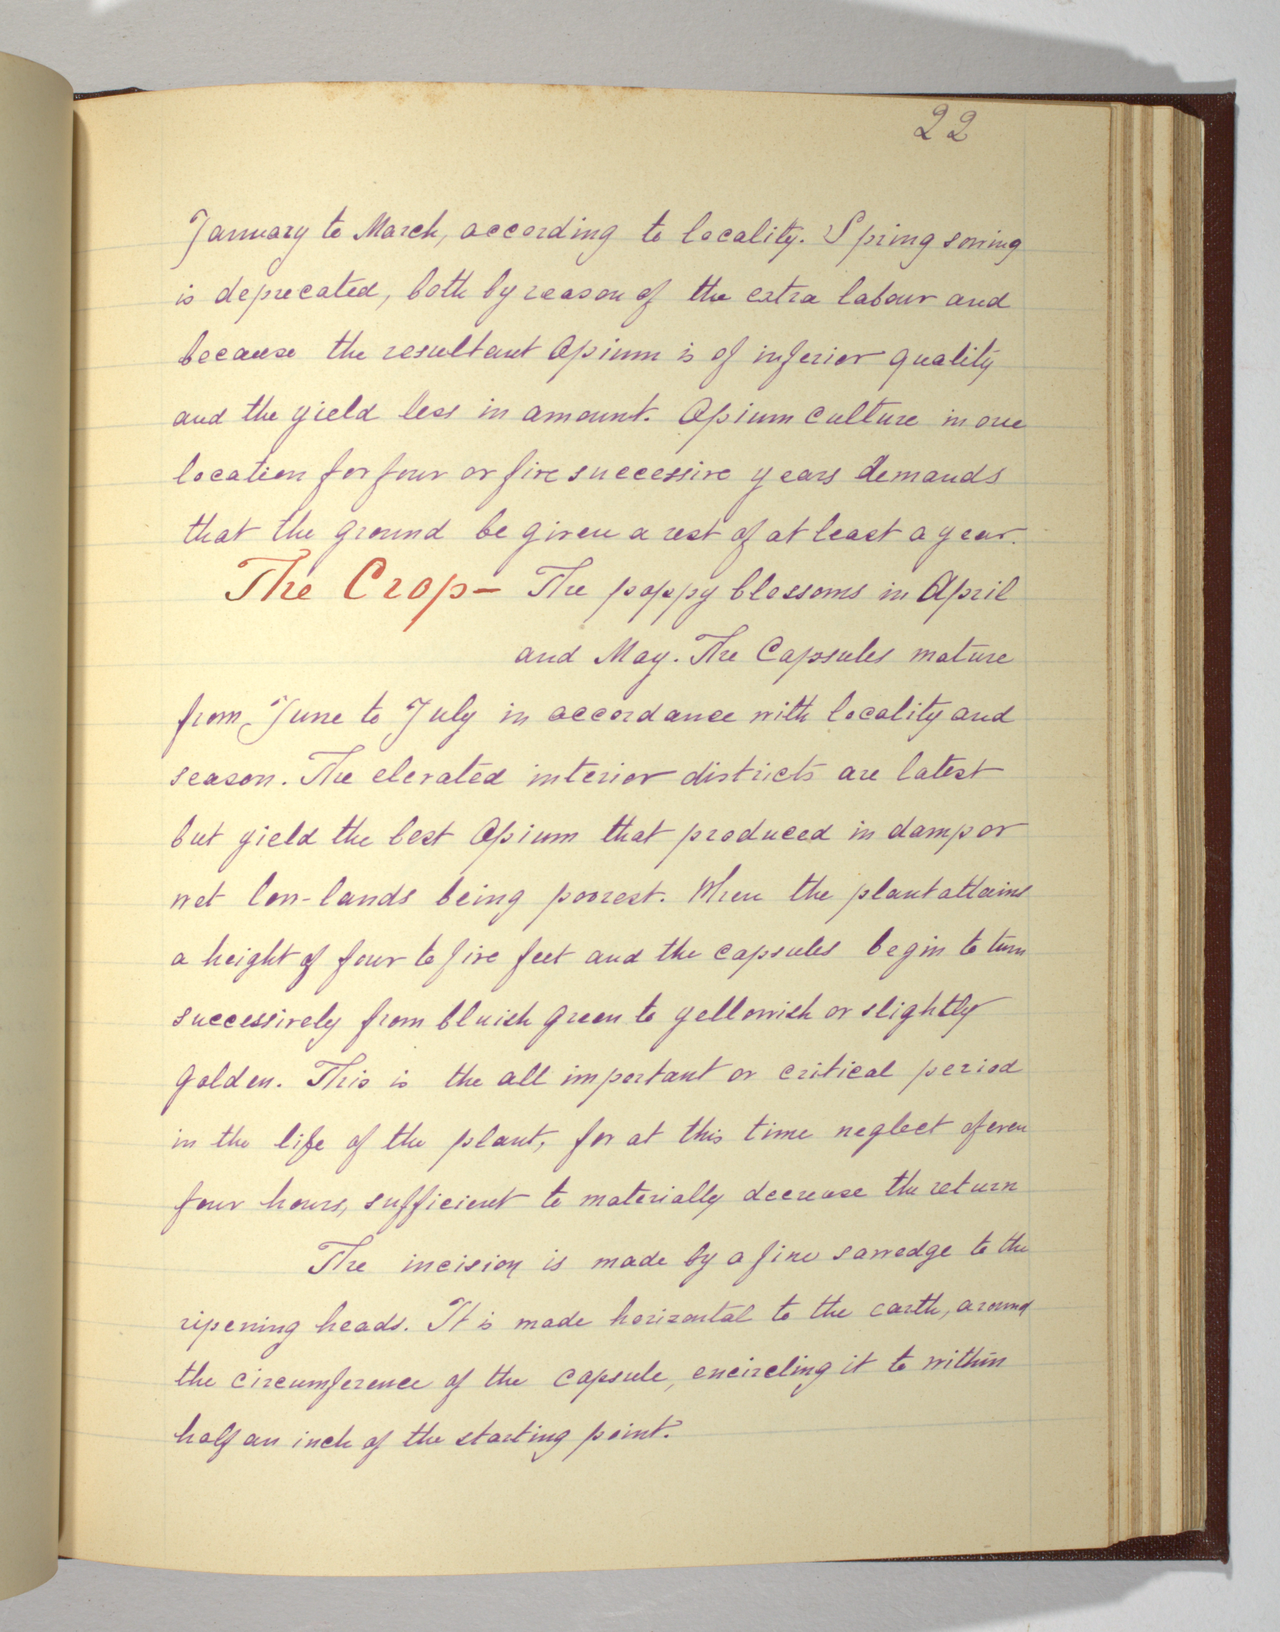 22
January to March, according to locality. Spring sowing
is deprecated, both by reason of the extra labour and
because the resultant Opium is of inferior quality
and the yield less in amount. Opium culture in one
location for four or five successive years demands
that the ground be given a rest of at least a year.
The Crop- The poppy blossoms in April
and May. The Capsules mature
from June to July in accordance with locality and
season. The elevated interior districts are latest
but yield the best Opium that produced in damp or
wet low-lands being poorest. When the plant attains
a height of four to five feet and the capsules begin to turn
successively from bluish green to yellowish or slightly
golden. This is the all important or critical period
in the life of the plant, for at this time neglect of even
four hours, sufficient to materially decrease the return
The incision is made by a fine sawedge to the
ripening heads. It is made horizontal to the earth, around
the circumference of the capsule, encircling it to within
half an inch of the starting point.